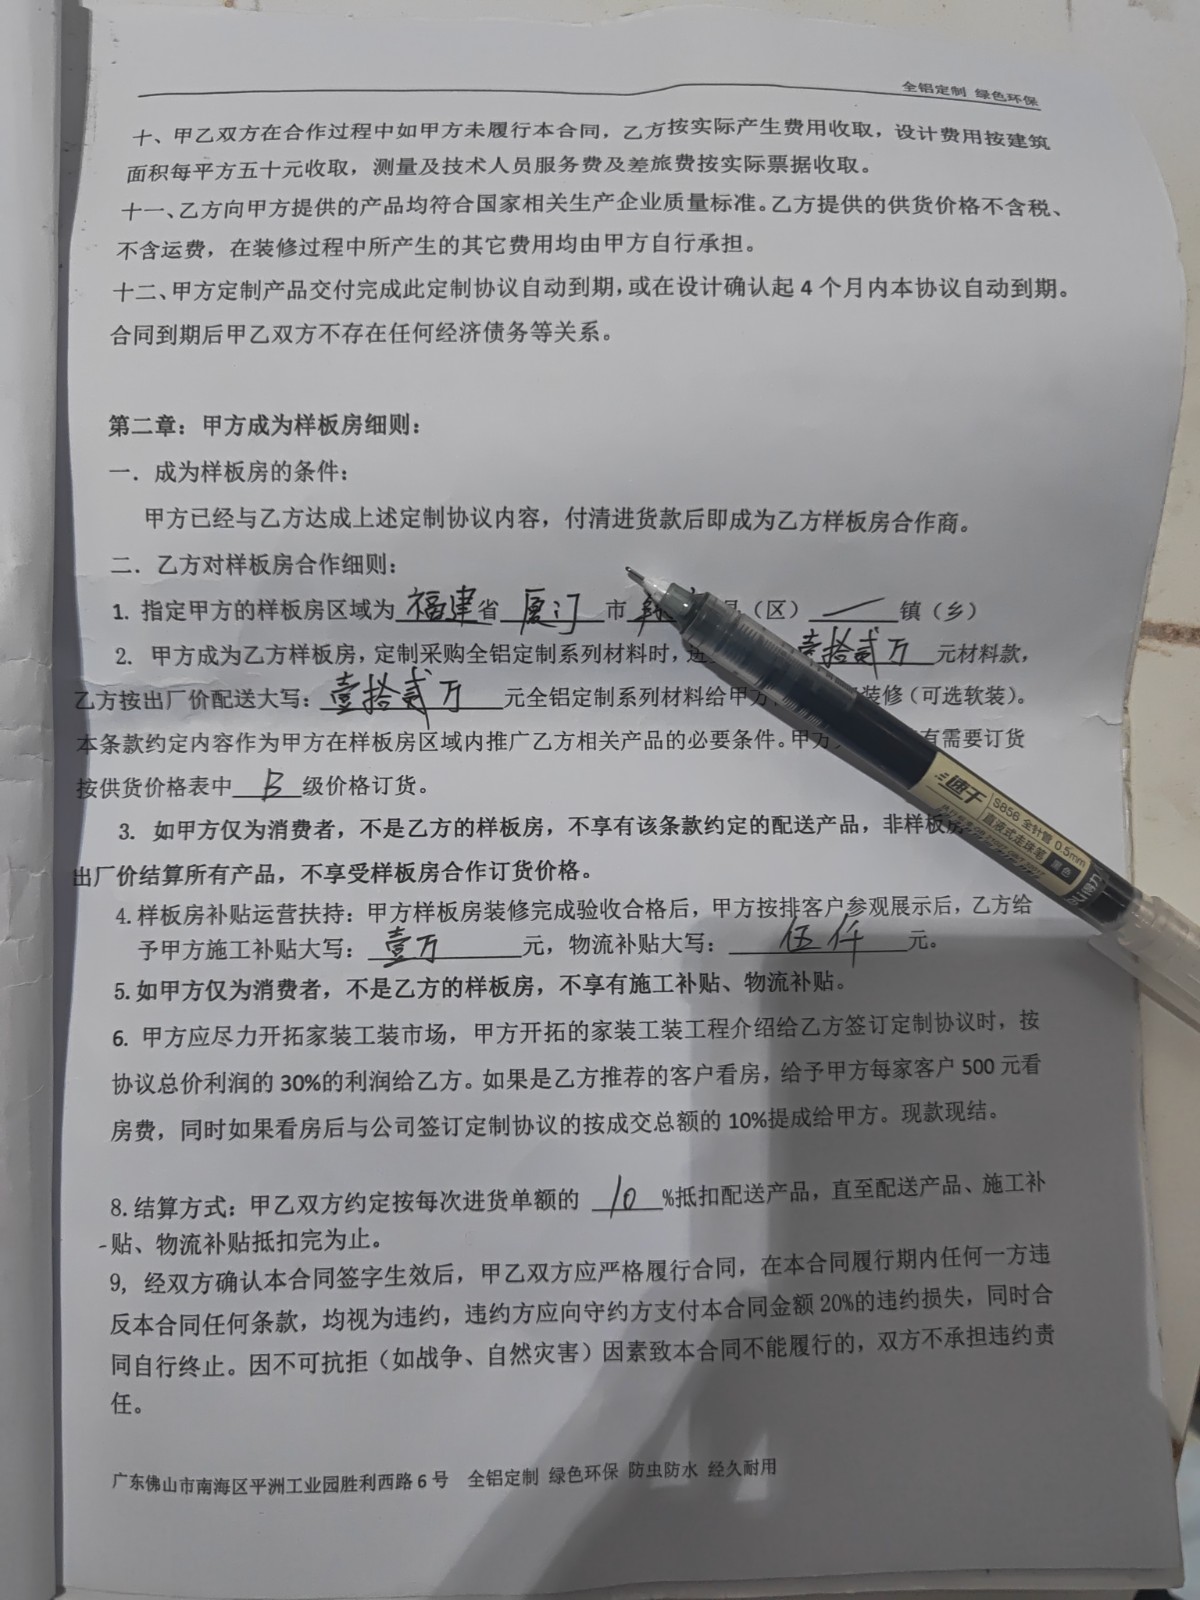 全铝定制 绿色环保
十、甲乙双方在合作过程中如甲方未履行本合同，乙方按实际产生费用收取，设计费用按建筑
面积每平方五十元收取，测量及技术人员服务费及差旅费按实际票据收取。
十一、乙方向甲方提供的产品均符合国家相关生产企业质量标准。乙方提供的供货价格不含税、
不含运费，在装修过程中所产生的其它费用均由甲方自行承担。
十二、甲方定制产品交付完成此定制协议自动到期，或在设计确认起 4 个月内本协议自动到期。
合同到期后甲乙双方不存在任何经济债务等关系。
第二章：甲方成为样板房细则：
一．成为样板房的条件：
甲方已经与乙方达成上述定制协议内容，付清进货款后即成为乙方样板房合作商。
二．乙方对样板房合作细则：
1. 指定甲方的样板房区域为 福建 省 厦门 市 （区） 镇（乡）
2. 甲方成为乙方样板房，定制采购全铝定制系列材料时， 壹拾贰万 元材料款，
乙方按出厂价配送大写：壹拾贰万 元全铝定制系列材料给甲方 装修（可选软装）。
本条款约定内容作为甲方在样板房区域内推广乙方相关产品的必要条件。甲方 有需要订货
按供货价格表中 B 级价格订货。
3. 如甲方仅为消费者，不是乙方的样板房，不享有该条款约定的配送产品，非样板房
出厂价结算所有产品，不享受样板房合作订货价格。
4. 样板房补贴运营扶持：甲方样板房装修完成验收合格后，甲方按排客户参观展示后，乙方给
予甲方施工补贴大写： 壹万 元，物流补贴大写： 伍仟 元。
5. 如甲方仅为消费者，不是乙方的样板房，不享有施工补贴、物流补贴。
6. 甲方应尽力开拓家装工装市场，甲方开拓的家装工装工程介绍给乙方签订定制协议时，按
协议总价利润的 30%的利润给乙方。如果是乙方推荐的客户看房，给予甲方每家客户 500 元看
房费，同时如果看房后与公司签订定制协议的按成交总额的 10%提成给甲方。现款现结。
8. 结算方式：甲乙双方约定按每次进货单额的 10 %抵扣配送产品，直至配送产品、施工补
贴、物流补贴抵扣完为止。
9, 经双方确认本合同签字生效后，甲乙双方应严格履行合同，在本合同履行期内任何一方违
反本合同任何条款，均视为违约，违约方应向守约方支付本合同金额 20%的违约损失，同时合
同自行终止。因不可抗拒（如战争、自然灾害）因素致本合同不能履行的，双方不承担违约责
任。
广东佛山市南海区平洲工业园胜利西路 6 号 全铝定制 绿色环保 防虫防水 经久耐用
速干
S856 全针管 0.5mm
直液式走珠笔 黑色
deli 得力